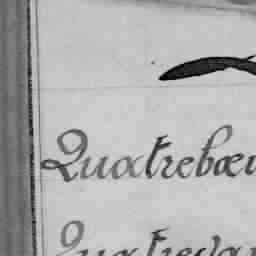 Quatrebœu
Quatreva